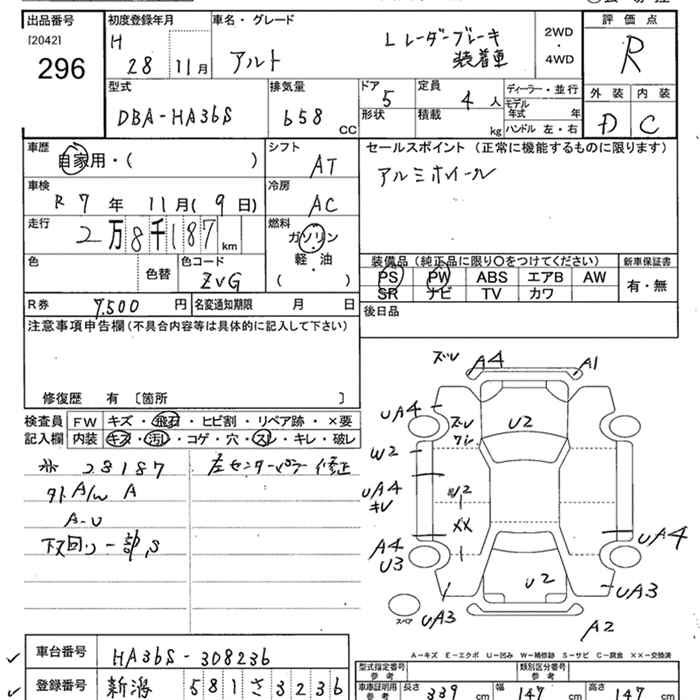 出品番号 初度登録年月 車名・グレード 評価点
[2042] H Lレーダーブレーキ 2WD
296 28 11月 アルト 装着車 ・ 4WD R
型式 排気量 ドア 5 定員 4人 ディーラー・並行 外装 内装
DBA-HA36S 658 CC 形状 積載 kg モデル年式 年 D C
ハンドル 左・右
車歴 シフト セールスポイント (正常に機能するものに限ります)
自家用・( ) AT アルミホイール
車検 冷房
R 7 年 11月(9 日) AC
走行 燃料
2万8千187km ガソリン
色 色替 色コード 軽・油
ZVG ( )
装備品 (純正品に限り〇をつけてください) 新車保証書
PS PW ABS エアB AW 有・無
SR ナビ TV カワ
R券 7,500 円 名変通知期限 月 日 後日品
注意事項申告欄(不具合内容等は具体的に記入して下さい)
修復歴 有 〔箇所 〕
検査員 FW キズ・飛石・ヒビ割・リペア跡・×要
記入欄 内装 キズ・汚れ・コゲ・穴・スレ・キレ・破レ
28187 左センターピラー修正
外A/W A
A-U
下回り一部S
ズレ A4 A1
UA4 ズレ U2
W2
UA4 キレ U2
XX
A4 U3 UA4
U2 UA3
スペア UA3 A2
A-キズ E-エクボ U-凹み W-補修跡 S-サビ C-腐食 ××-交換済
車台番号 HA36S-308236
登録番号 新潟 581さ3236
型式指定番号 参考 類別区分番号 参考
車庫証明用 参考 長さ 339 cm 幅 147 cm 高さ 147 cm